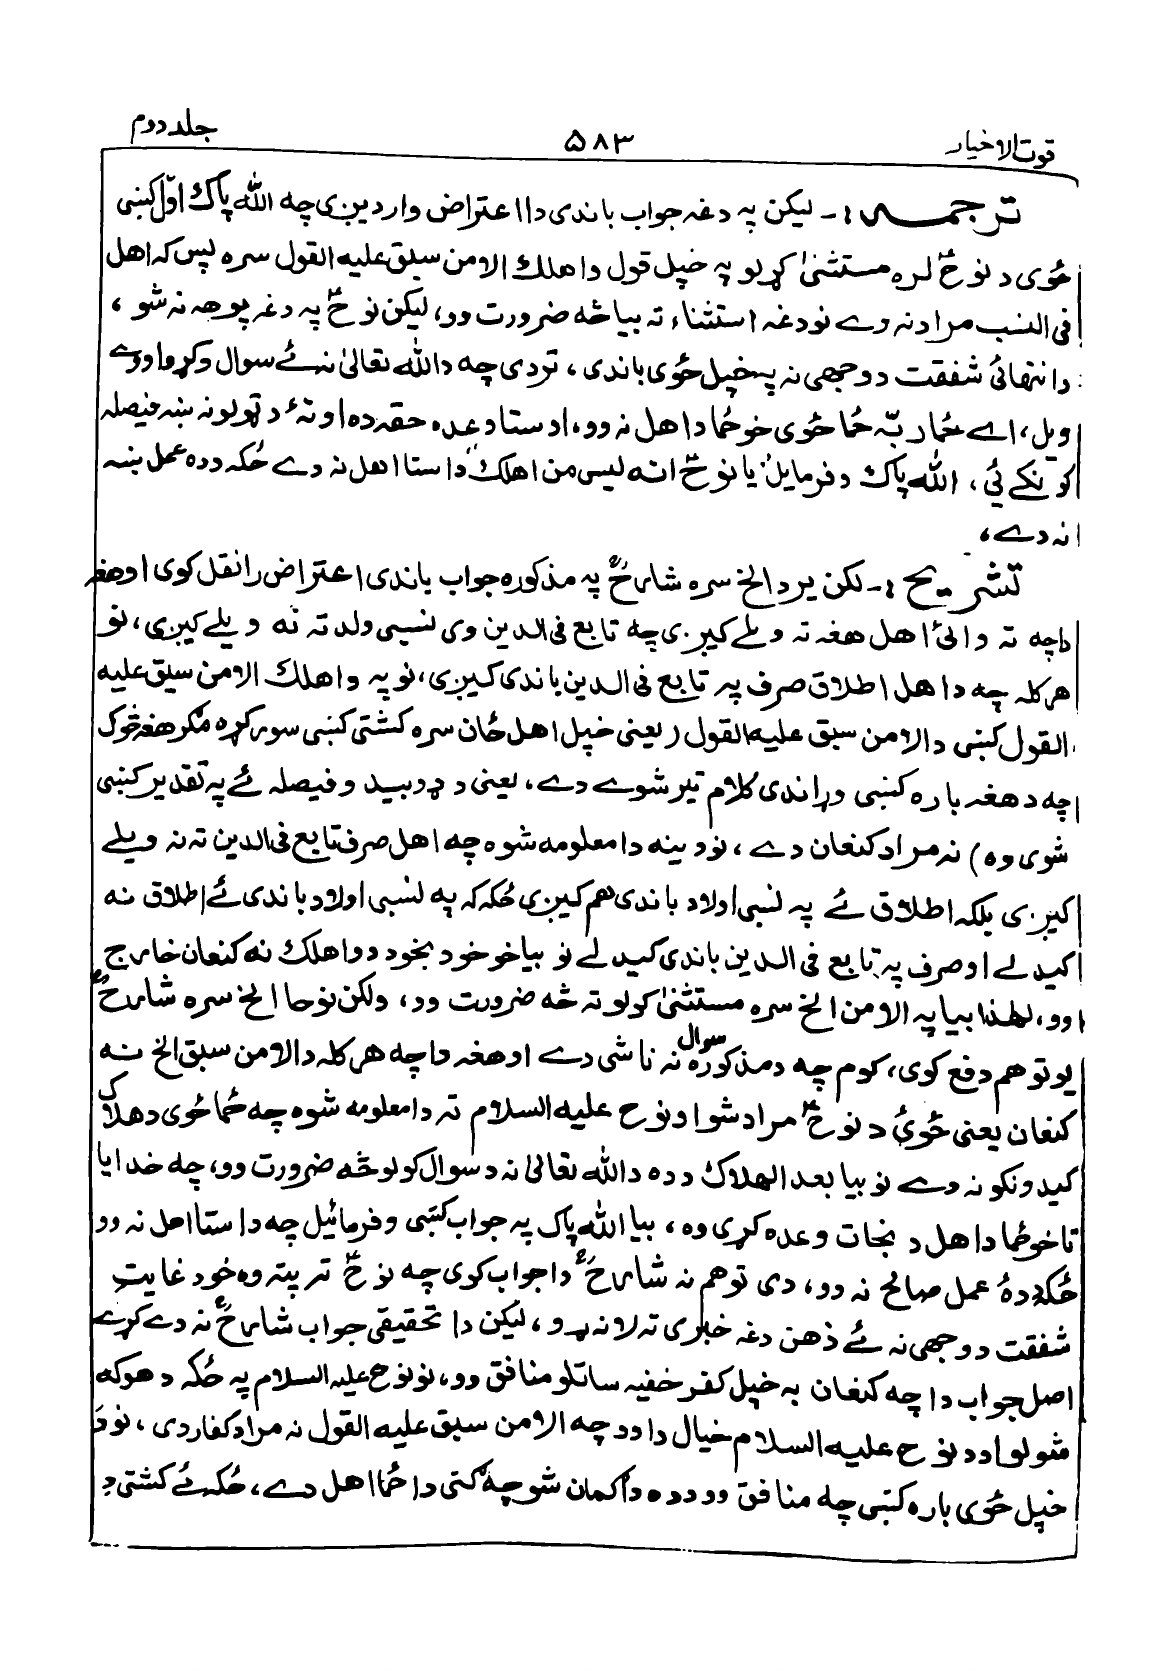 قوت الاخیار ۵۸۳ جلد دوم
ترجمـــہ :- لیکن پہ دغہ جواب باندی دا اعتراض واردیږی چہ اللہ پاک اوّل کښی
ځوی د نوحؑ لره مستثنیٰ کړلو پہ خپل قول د اهلک الا من سبق علیه القول سره پس کہ اهل
فی النسب مراد نہ وے نو دغہ استثناء تہ بیا څہ ضرورت وو، لیکن نوحؑ پہ دغہ پوهہ نہ شو ،
د انتهائی شفقت د وجهی نہ پہ خپل ځوی باندی ، تردی چہ د اللہ تعالیٰ نہ ئے سوال وکړو او وے
ویل، اے ځما ربّہ ځما ځوی خو ځما د اهل نہ وو، او ستا وعده حقہ ده او تہ د ټولو نہ ښہ فیصلہ
کونکے ئی ، اللہ پاک وفرمایل: یا نوحؑ انہ لیس من اهلک دا ستا اهل نہ دے ځکہ د ده عمل ښہ
نہ دے،
تشریح :- لکن یرد الخ سره شارحؒ پہ مذکوره جواب باندی اعتراض رانقل کوی او هغہ
دا چہ تہ وائی اهل هغہ تہ ویلے کیږی چہ تابع فی الدین وی نسبی ولد تہ نہ ویلے کیږی، نو
هرکلہ چہ د اهل اطلاق صرف پہ تابع فی الدین باندی کیږی، نو پہ واهلک الا من سبق علیه
القول کښی د الا من سبق علیه القول (یعنی خپل اهل ځان سره کشتی کښی سور کړه مگر هغہ څوک
چہ د هغہ باره کښی وړاندی کلام تیر شوے دے، یعنی د ډوبید و فیصلہ ئے پہ تقدیر کښی
شوی وه) نہ مراد کنعان دے ، نو د ینہ دا معلومہ شوه چہ اهل صرف تابع فی الدین تہ نہ ویلے
کیږی بلکہ اطلاق ئے پہ نسبی اولاد باندی هم کیږی ځکہ کہ پہ نسبی اولاد باندی ئے اطلاق نہ
کیدلے او صرف پہ تابع فی الدین باندی کیدلے نو بیا خو خود بخود د واهلک نہ کنعان خارج
وو، لهٰذا بیا پہ الا من الخ سره مستثنیٰ کولو تہ څہ ضرورت وو، ولکن نوحا الخ سره شارحؒ
یو توهم دفع کوی، کوم چہ د مذکوره سوال نہ ناشی دے او هغہ دا چہ هر کلہ د الا من سبق الخ نہ
کنعان یعنی ځوئ د نوحؑ مراد شو او نوح علیه السلام تہ دا معلومہ شوه چہ ځما ځوی د هلاک
کیدونکو نہ دے نو بیا بعد الهلاک د ده د اللہ تعالیٰ نہ د سوال کولو څہ ضرورت وو، چہ خدایا
تا خو ځما د اهل د نجات وعده کړی وه ، بیا اللہ پاک پہ جواب کښی وفرمائیل چہ دا ستا اهل نہ وو
ځکہ د دهٔ عمل صالح نہ وو، دی توهم نہ شارحؒ دا جواب کوی چہ نوحؑ تہ پتہ وه خو د غایت
شفقت د وجهی نہ ئے ذهن دغہ خبری تہ لا نہ ړو ، لیکن دا تحقیقی جواب شارحؒ نہ دے کړے
اصل جواب دا چہ کنعان پہ خپل کفر خفیہ ساتلو منافق وو، نو نوح علیہ السلام پہ ځکہ دهوکہ
شو لو او د نوح علیه السلام خیال دا وو چہ الا من سبق علیه القول نہ مراد کفار دی ، نو د
خپل ځوی باره کښی چہ منافق وو د ده دا گمان شو چہ گنی دا ځما اهل دے، ځکہ ئے کشتی د